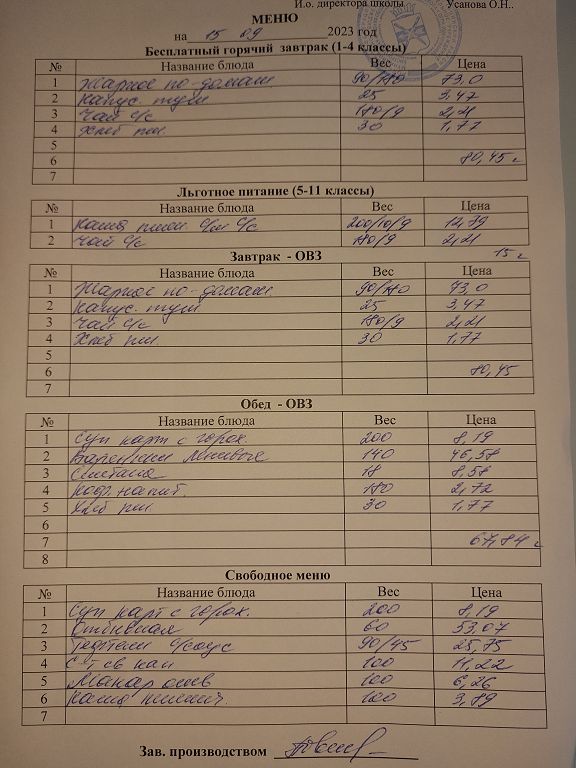 И.о. директора школы Усанова О.Н..
МЕНЮ
на 15 09 2023 год
Бесплатный горячий завтрак (1-4 классы)
№ Название блюда Вес Цена
1 Жаркое по-домаш. 90/180 73,0
2 Капус. туш 25 3.47
3 Чай с/с 180/9 2,21
4 Хлеб пш. 30 1,77
5
6 80,45
7
Льготное питание (5-11 классы)
№ Название блюда Вес Цена
1 Каша пшен с/м с/с 200/10/9 12,79
2 Чай с/с 180/9 2,21
15
Завтрак - ОВЗ
№ Название блюда Вес Цена
1 Жаркое по-домаш. 90/180 73,0
2 Капус. туш 25 3.47
3 Чай с/с 180/9 2,21
4 Хлеб пш. 30 1,77
5
6 80,45
7
Обед - ОВЗ
№ Название блюда Вес Цена
1 Суп карт с горох. 200 8,19
2 Вареники ленивые 140 46,58
3 Сметана 18 8,58
4 напит. 180 2,72
5 Хлеб пш. 30 1,77
6
7 67,84
8
Свободное меню
№ Название блюда Вес Цена
1 Суп карт с горох. 200 8,19
2 Отбивная 60 53,07
3 Тефтели с/соус 90/45 25,75
4 С-т св кап 100 11,22
5 Макар отв 100 6,26
6 Каша 100 3,89
7
Зав. производством